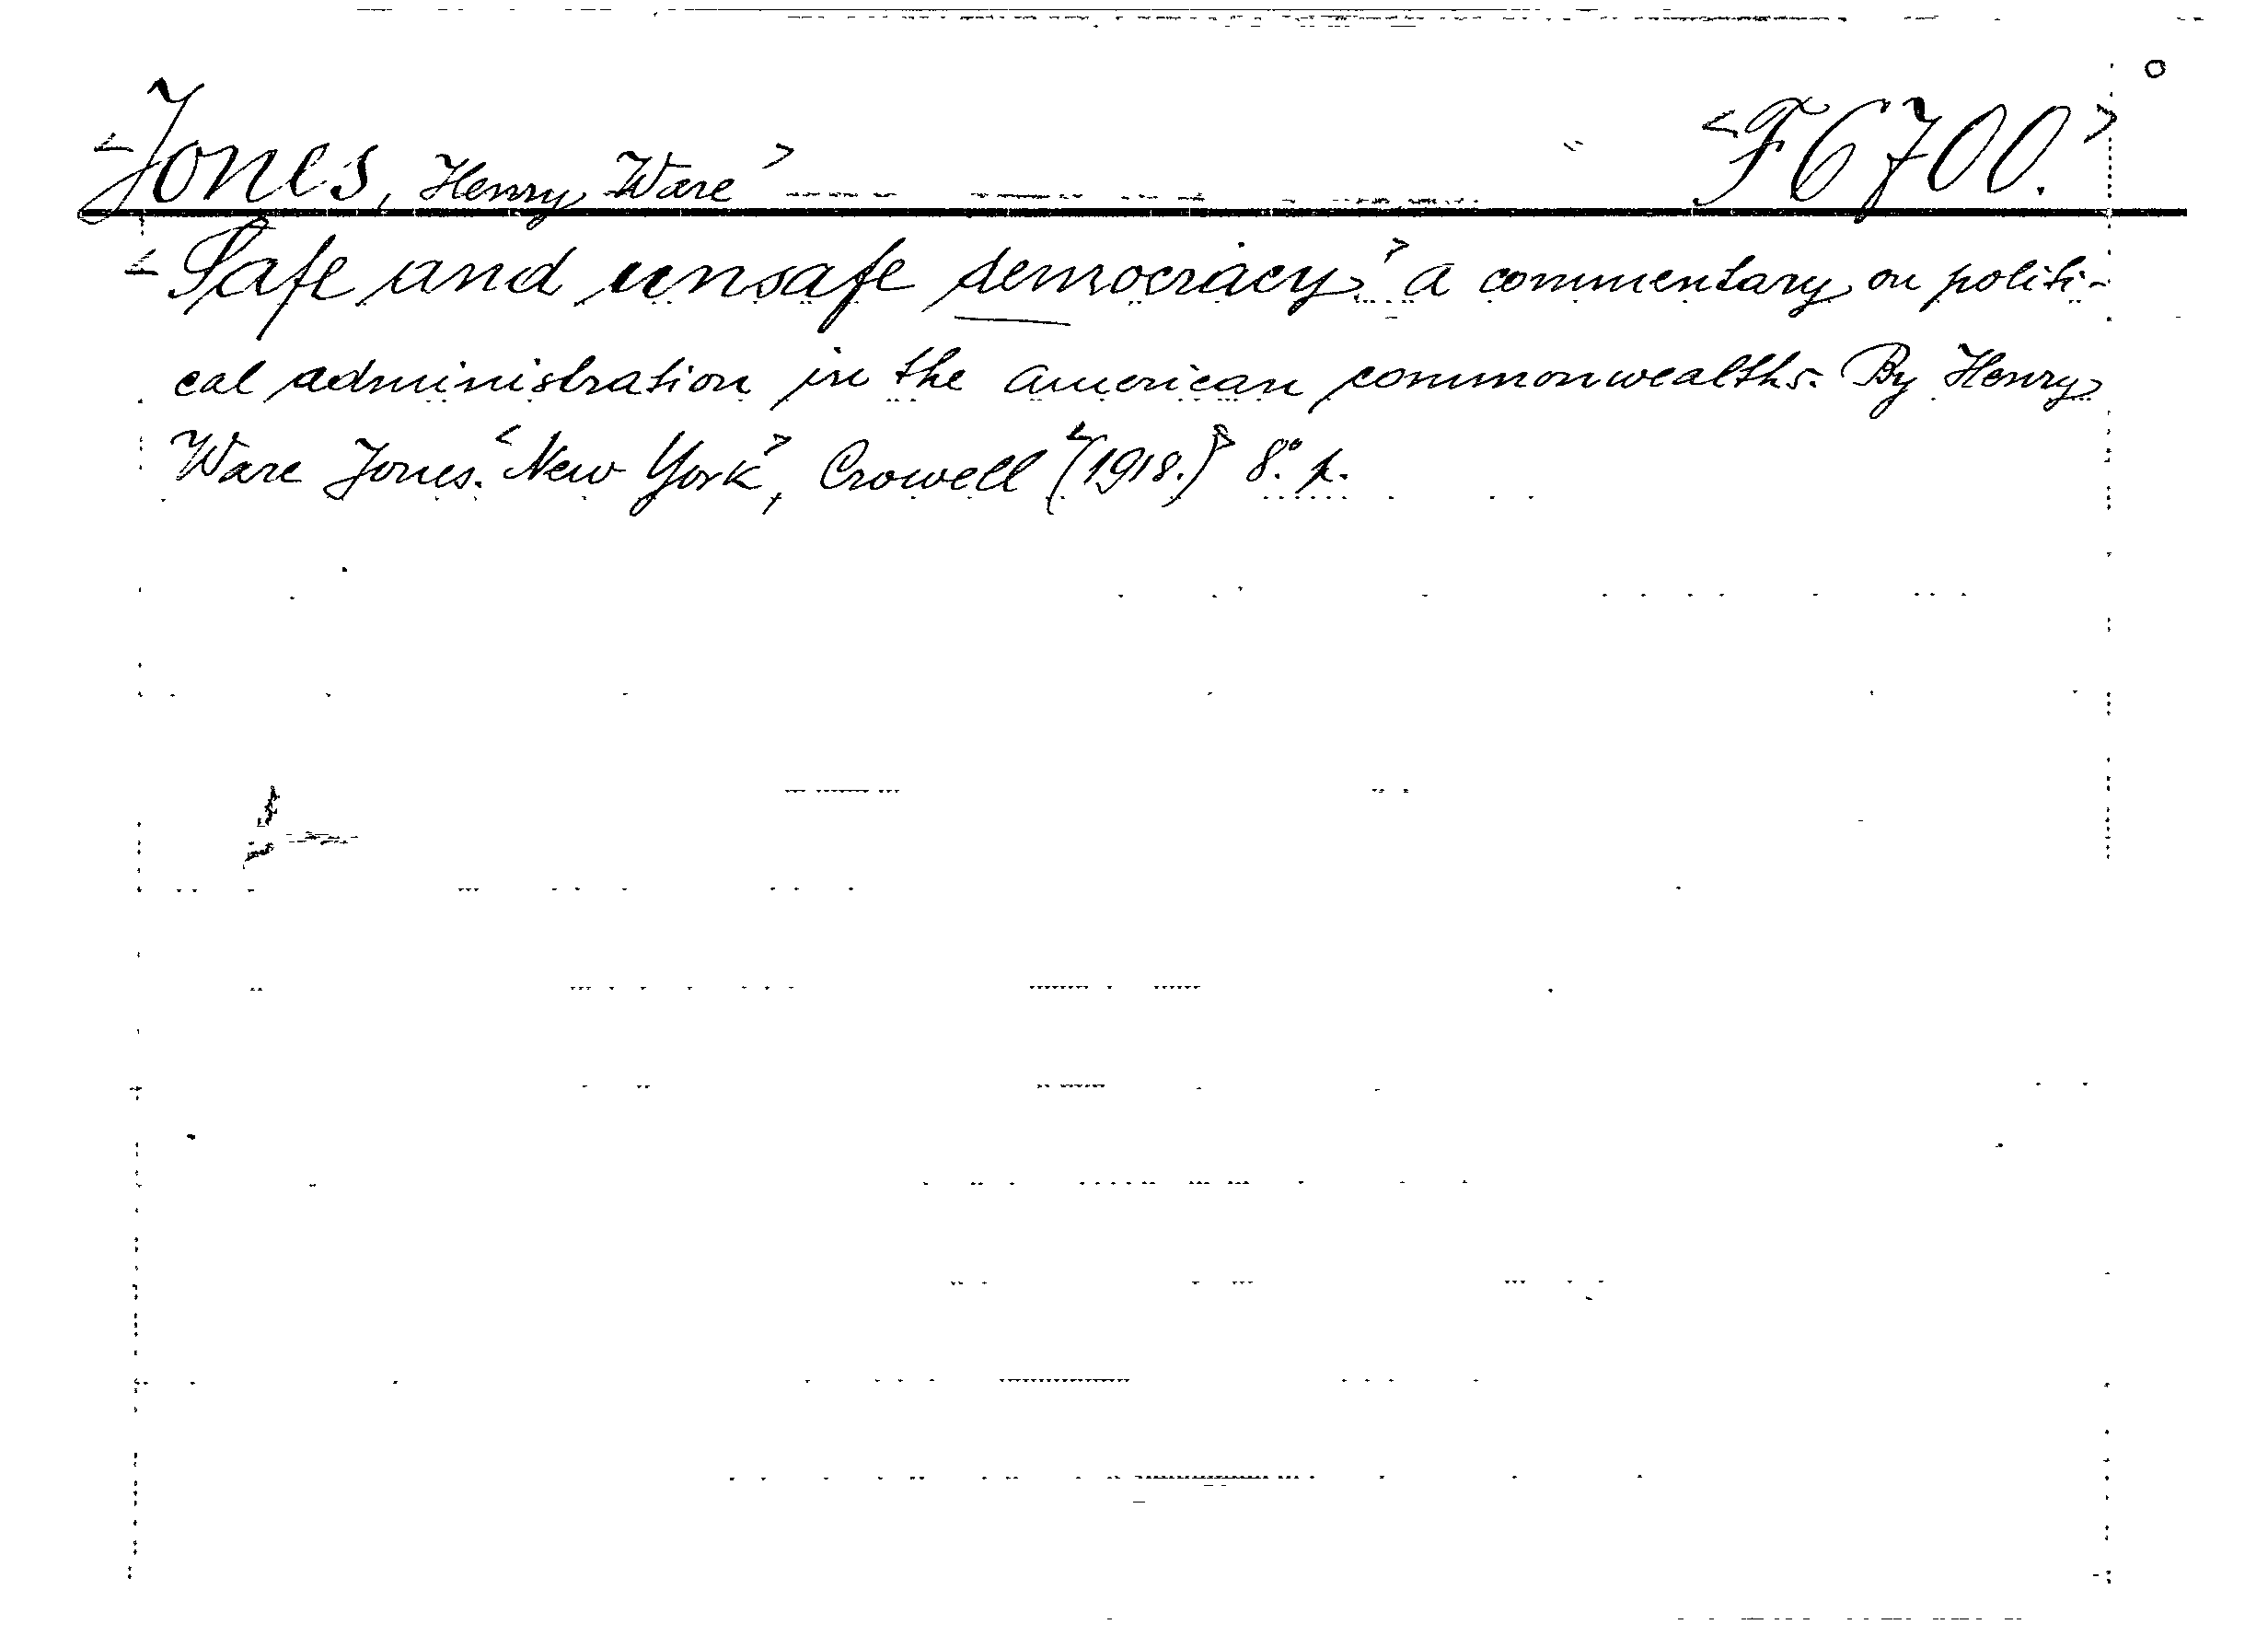 <Jones, Henry Ware> <F6700.>
<Safe and unsafe democracy> a commentary on politi-
cal administration in the american commonwealths. By Henry
Ware Jones. <New York>, Crowell <(1918.)> 8.° p.